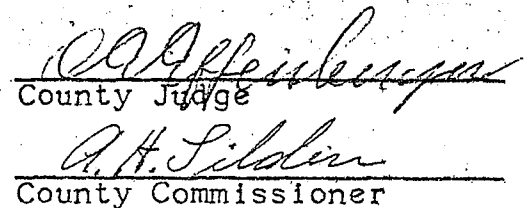 County Judge
A. H. Tilden
County Commissioner